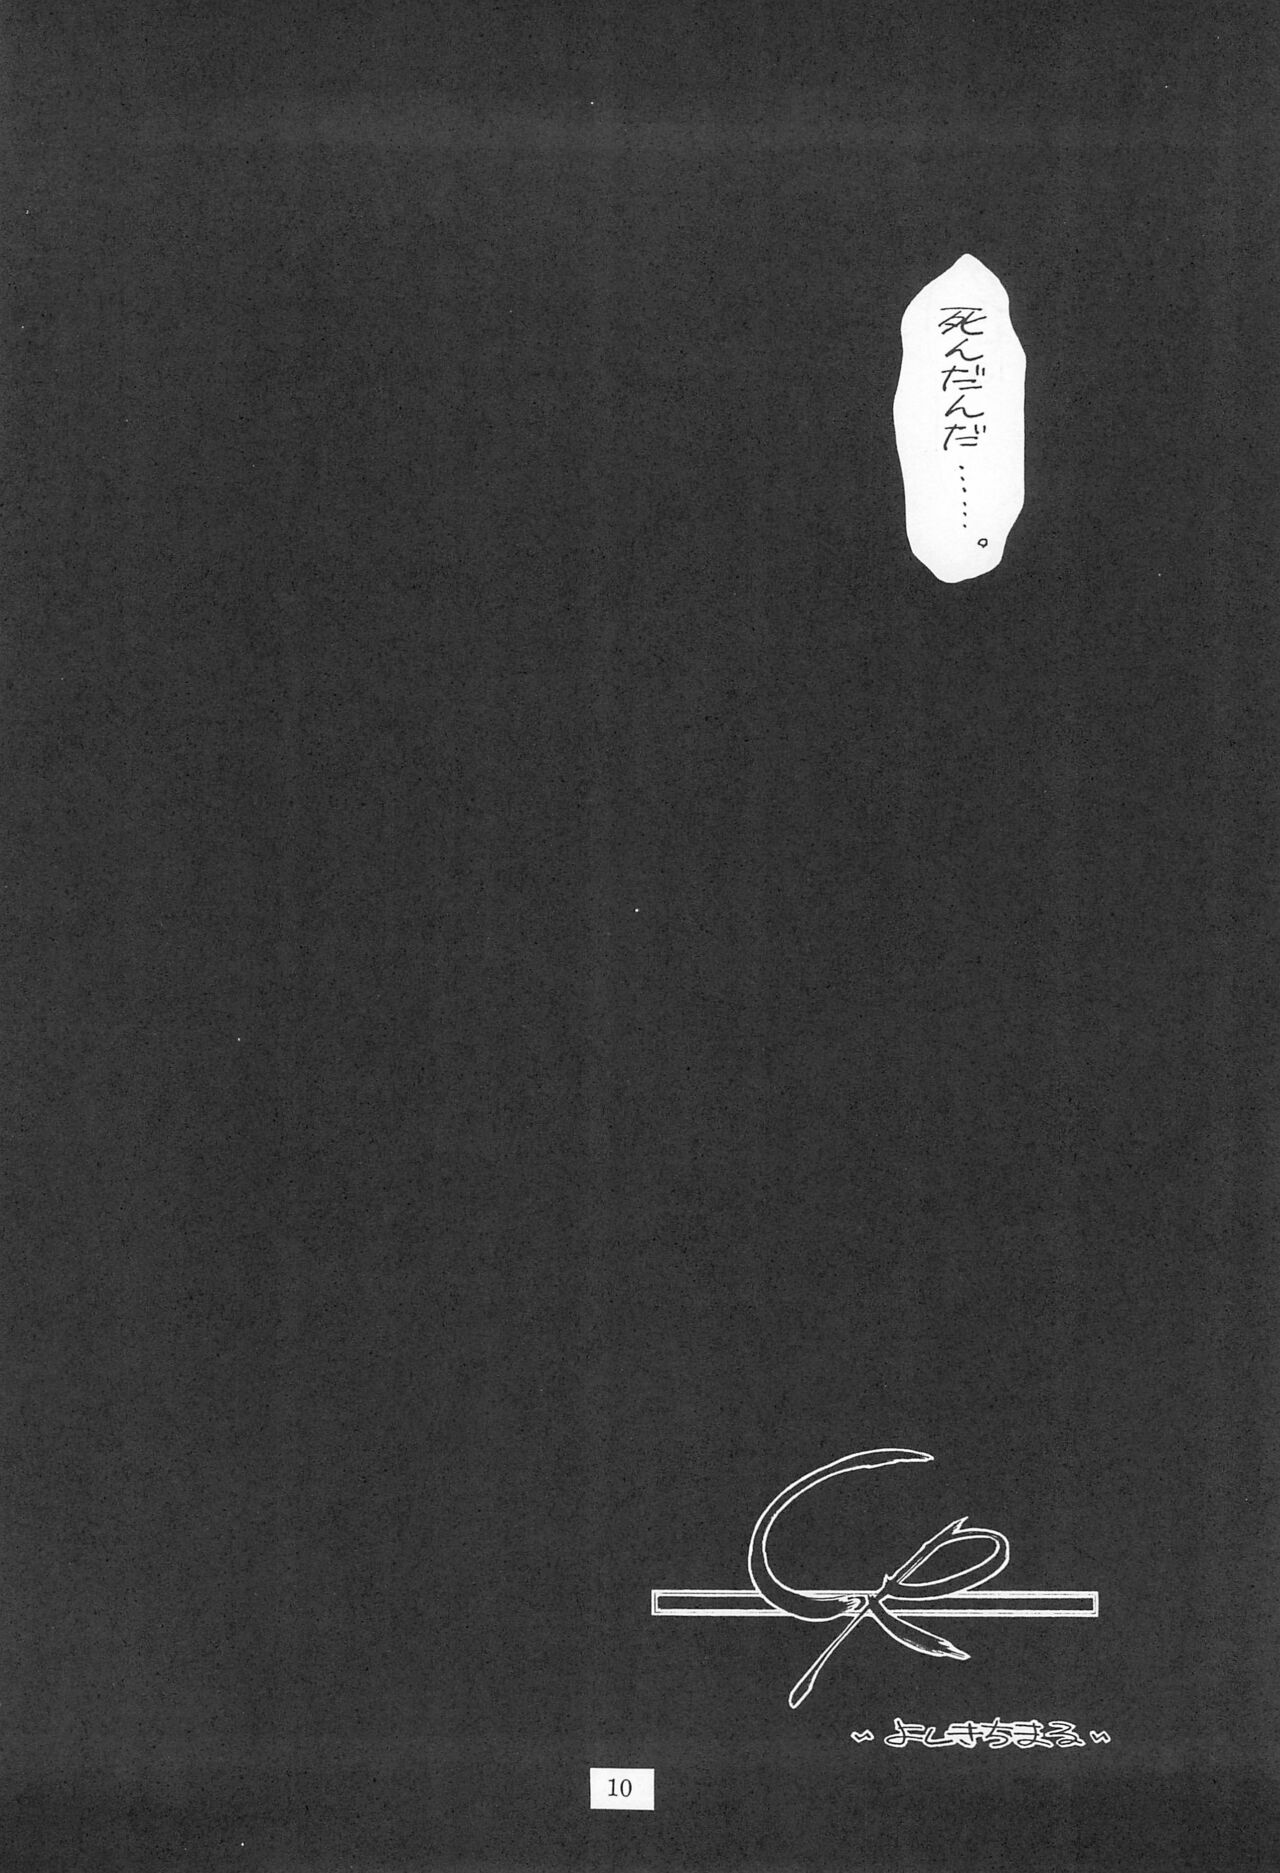 死んだんだ……。
CR
~よしきちまる~
10